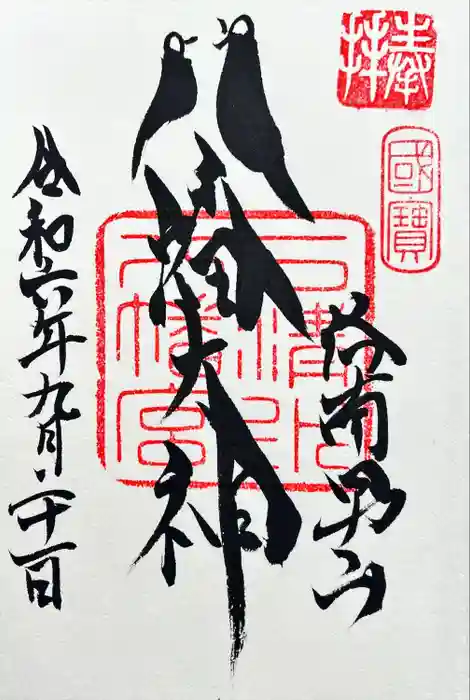 奉拝
國寶
洛南男山
八幡大神
石清水八幡宮
令和六年九月二十一日